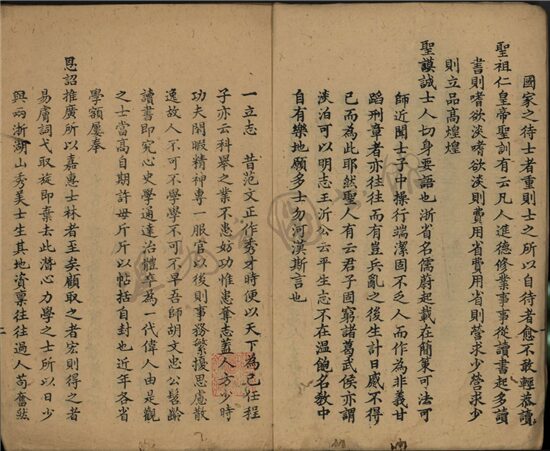 國家之待士者重則士之所以自待者愈不敢輕恭讀
聖祖仁皇帝聖訓有云凡人進德修業事事從讀書起多讀
書則嗜欲淡嗜欲淡則費用省費用省則營求少營求少
則立品高煌煌
聖謨誠士人切身要語也浙省名儒蔚起載在簡策可法可
師近聞士子中操行端潔固不乏人而作為非義甘
蹈刑章者亦往往而有豈兵亂之後生計日蹙不得
已而為此耶然聖人有云君子固窮諸葛武侯亦謂
淡泊可以明志王沂公云平生志不在溫飽名教中
自有樂地願多士勿河漢斯言也
一立志 昔范文正作秀才時便以天下為己任程
子亦云科舉之業不患妨功惟患奪志蓋人方少時
功夫閒暇精神專一服官以後則事務繁擾思慮散
逸故人不可不學學不可不早吾師胡文忠公髫齡
讀書即究心史學通達治體卒為一代偉人由是觀
之士當高自期許毋斤斤以帖括自封也近年各省
學額屢奉
恩詔推廣所以嘉惠士林者至矣顧取之者宏則得之者
易膚詞弋取旋即棄去此潛心力學之士所以日少
與兩浙湖山秀美士生其地資稟往往過人苟奮然